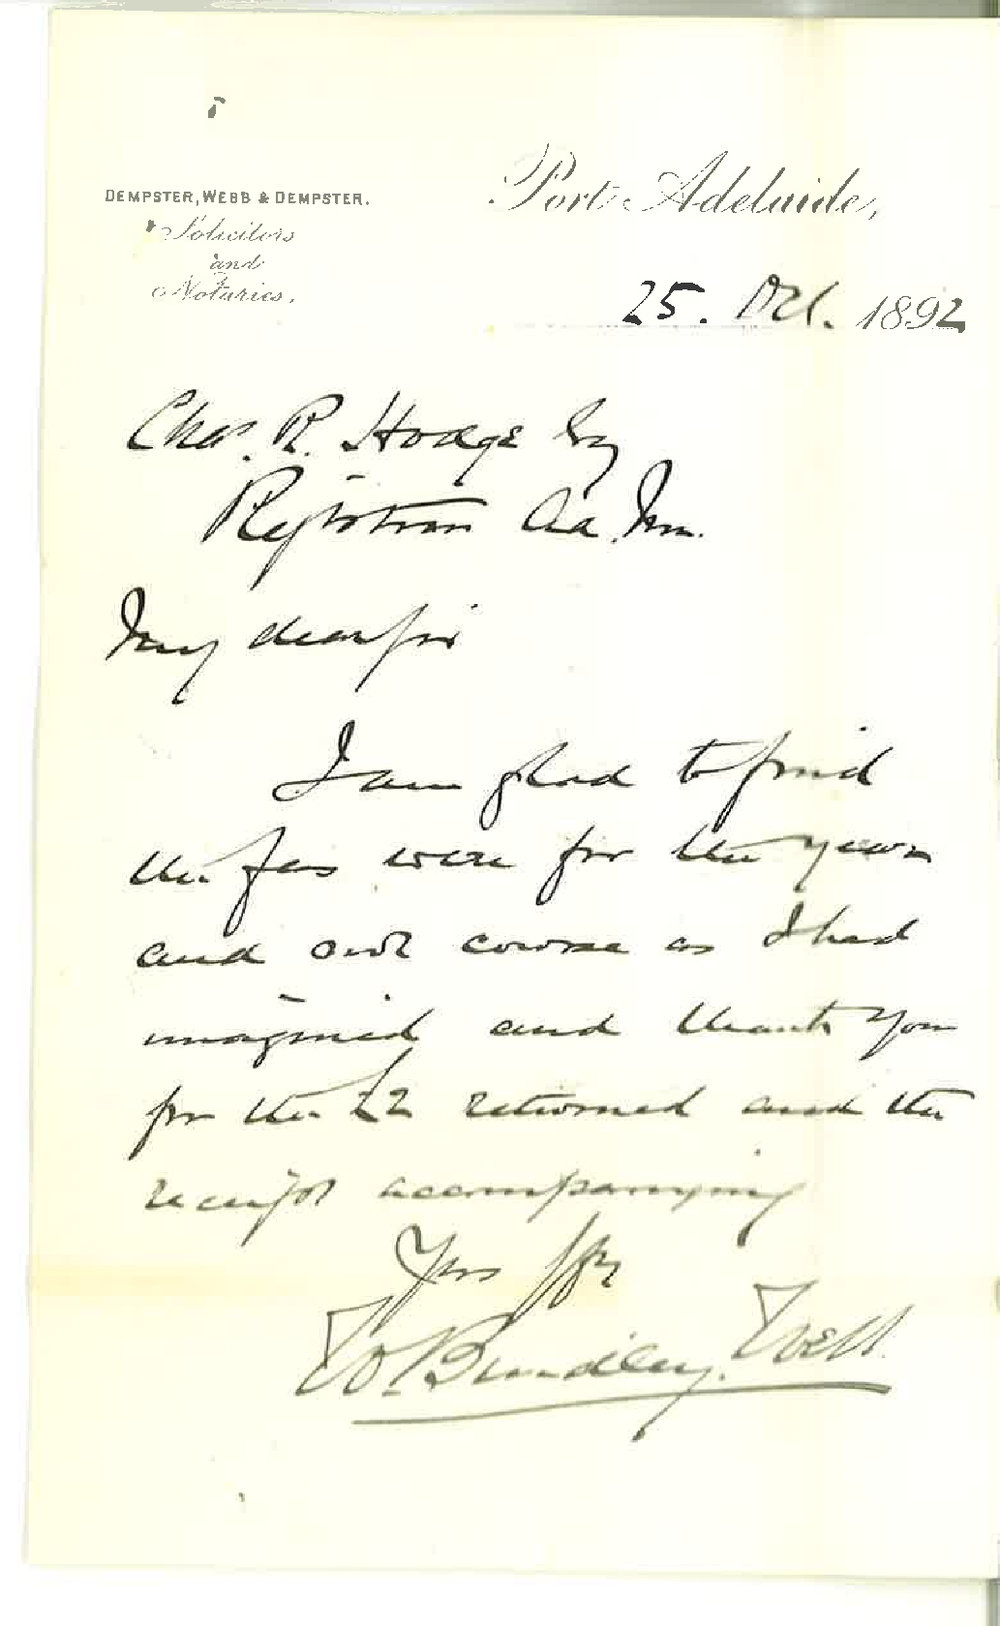 DEMPSTER, WEBB & DEMPSTER.
Solicitors
and
Notaries.
Port Adelaide,
25. Oct. 1892
Chas. R. Hodge Esq
Registrar Ad. Un.
My dear Sir
I am glad to find
the fees were for the year
and not course as I had
imagined and thank you
for the £2 returned and the
receipt accompanying
Yrs ffy
W. Bundley. Webb.